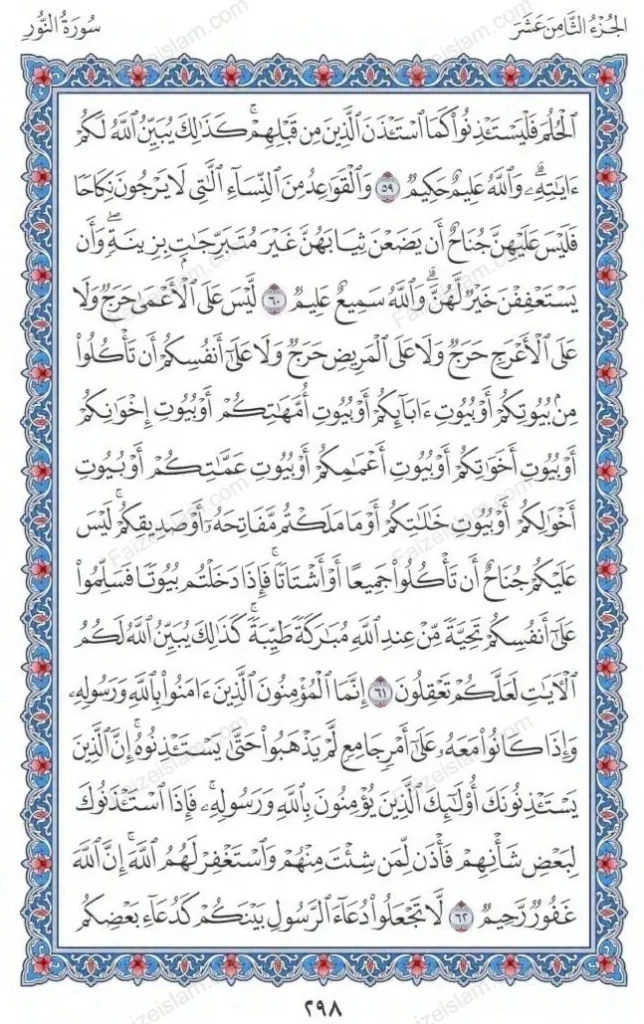 الجُزْءُ الثَّامِنَ عَشَرَ
سُورَةُ النُّورِ
ٱلْحُلُمَ فَلْيَسْتَـْٔذِنُوا۟ كَمَا ٱسْتَـْٔذَنَ ٱلَّذِينَ مِن قَبْلِهِمْ ۚ كَذَٰلِكَ يُبَيِّنُ ٱللَّهُ لَكُمْ
ءَايَـٰتِهِۦ ۗ وَٱللَّهُ عَلِيمٌ حَكِيمٌ ٥٩ وَٱلْقَوَٰعِدُ مِنَ ٱلنِّسَآءِ ٱلَّـٰتِى لَا يَرْجُونَ نِكَاحًا
فَلَيْسَ عَلَيْهِنَّ جُنَاحٌ أَن يَضَعْنَ ثِيَابَهُنَّ غَيْرَ مُتَبَرِّجَـٰتٍۭ بِزِينَةٍ ۖ وَأَن
يَسْتَعْفِفْنَ خَيْرٌ لَّهُنَّ ۗ وَٱللَّهُ سَمِيعٌ عَلِيمٌ ٦٠ لَّيْسَ عَلَى ٱلْأَعْمَىٰ حَرَجٌ وَلَا
عَلَى ٱلْأَعْرَجِ حَرَجٌ وَلَا عَلَى ٱلْمَرِيضِ حَرَجٌ وَلَا عَلَىٰٓ أَنفُسِكُمْ أَن تَأْكُلُوا۟
مِنۢ بُيُوتِكُمْ أَوْ بُيُوتِ ءَابَآئِكُمْ أَوْ بُيُوتِ أُمَّهَـٰتِكُمْ أَوْ بُيُوتِ إِخْوَٰنِكُمْ
أَوْ بُيُوتِ أَخَوَٰتِكُمْ أَوْ بُيُوتِ أَعْمَـٰمِكُمْ أَوْ بُيُوتِ عَمَّـٰتِكُمْ أَوْ بُيُوتِ
أَخْوَٰلِكُمْ أَوْ بُيُوتِ خَـٰلَـٰتِكُمْ أَوْ مَا مَلَكْتُم مَّفَاتِحَهُۥٓ أَوْ صَدِيقِكُمْ ۚ لَيْسَ
عَلَيْكُمْ جُنَاحٌ أَن تَأْكُلُوا۟ جَمِيعًا أَوْ أَشْتَاتًا ۚ فَإِذَا دَخَلْتُم بُيُوتًا فَسَلِّمُوا۟
عَلَىٰٓ أَنفُسِكُمْ تَحِيَّةً مِّنْ عِندِ ٱللَّهِ مُبَـٰرَكَةً طَيِّبَةً ۚ كَذَٰلِكَ يُبَيِّنُ ٱللَّهُ لَكُمُ
ٱلْـَٔايَـٰتِ لَعَلَّكُمْ تَعْقِلُونَ ٦١ إِنَّمَا ٱلْمُؤْمِنُونَ ٱلَّذِينَ ءَامَنُوا۟ بِٱللَّهِ وَرَسُولِهِۦ
وَإِذَا كَانُوا۟ مَعَهُۥ عَلَىٰٓ أَمْرٍ جَامِعٍ لَّمْ يَذْهَبُوا۟ حَتَّىٰ يَسْتَـْٔذِنُوهُ ۚ إِنَّ ٱلَّذِينَ
يَسْتَـْٔذِنُونَكَ أُو۟لَـٰٓئِكَ ٱلَّذِينَ يُؤْمِنُونَ بِٱللَّهِ وَرَسُولِهِۦ ۚ فَإِذَا ٱسْتَـْٔذَنُوكَ
لِبَعْضِ شَأْنِهِمْ فَأْذَن لِّمَن شِئْتَ مِنْهُمْ وَٱسْتَغْفِرْ لَهُمُ ٱللَّهَ ۚ إِنَّ ٱللَّهَ
غَفُورٌ رَّحِيمٌ ٦٢ لَّا تَجْعَلُوا۟ دُعَآءَ ٱلرَّسُولِ بَيْنَكُمْ كَدُعَآءِ بَعْضِكُم
٢٩٨
Faizeislam.com